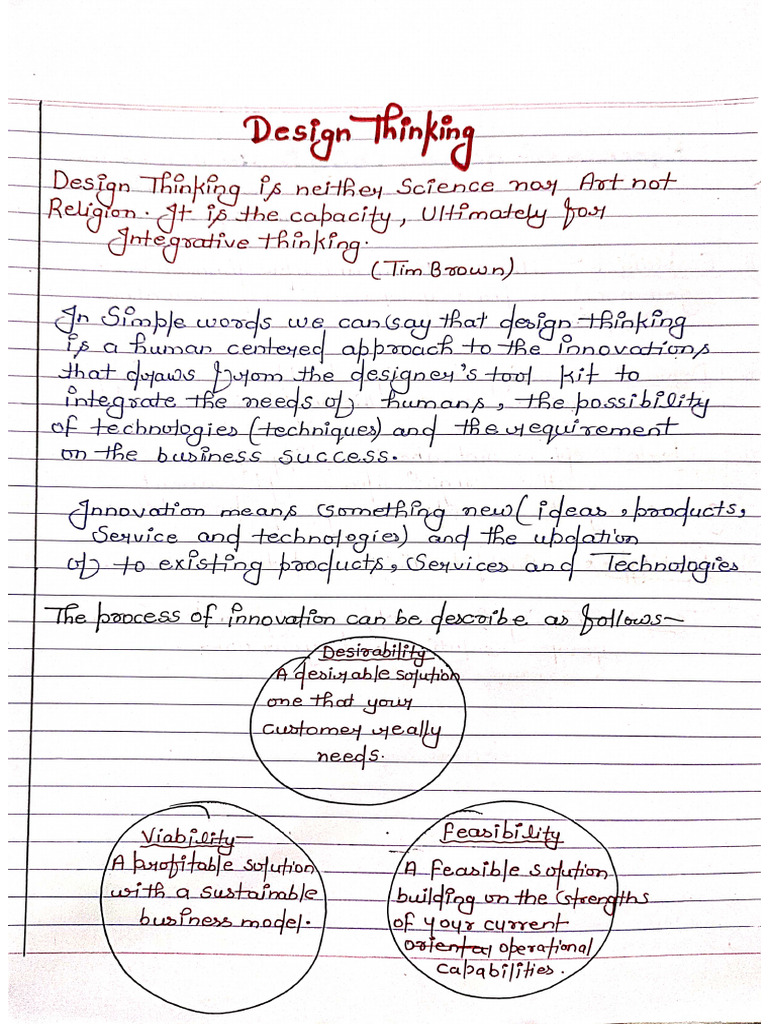 Design Thinking
Design Thinking is neither Science nor Art not
Religion. It is the capacity, Ultimately for
Integrative thinking.
(Tim Brown)
In Simple words we can say that design thinking
is a human centered approach to the innovations
that draws from the designer's tool kit to
integrate the needs of humans, the possibility
of technologies (techniques) and the requirement
on the business success.
Innovation means something new (ideas, products,
Service and technologies) and the updation
of to existing products, Services and Technologies
The process of innovation can be describe as follows-
Desirability
A desirable solution
one that your
customer really
needs.
Viability-
A profitable solution
with a sustainable
business model.
Feasibility
A feasible solution
building on the strengths
of your current
operational
capabilities.